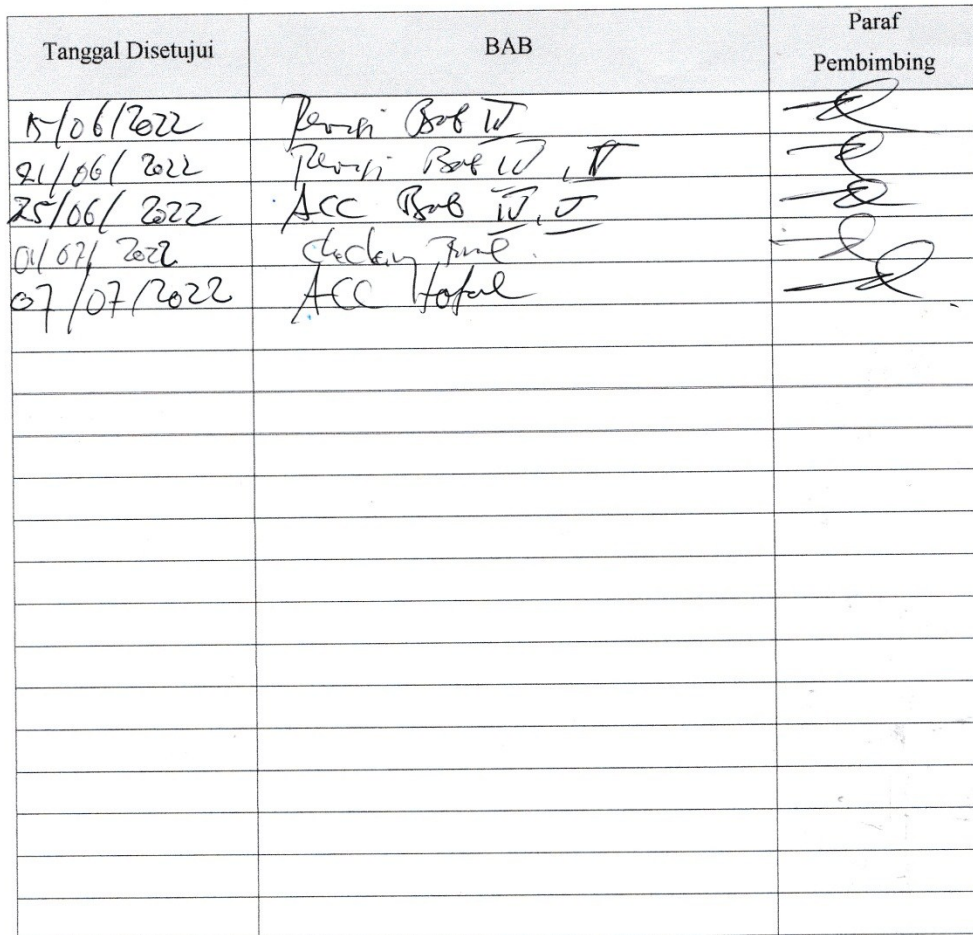 Tanggal Disetujui BAB Paraf
Pembimbing
15/06/2022 Revisi Bab IV
21/06/2022 Revisi Bab IV, V
25/06/2022 ACC Bab IV, V
01/07/2022
07/07/2022 ACC Total